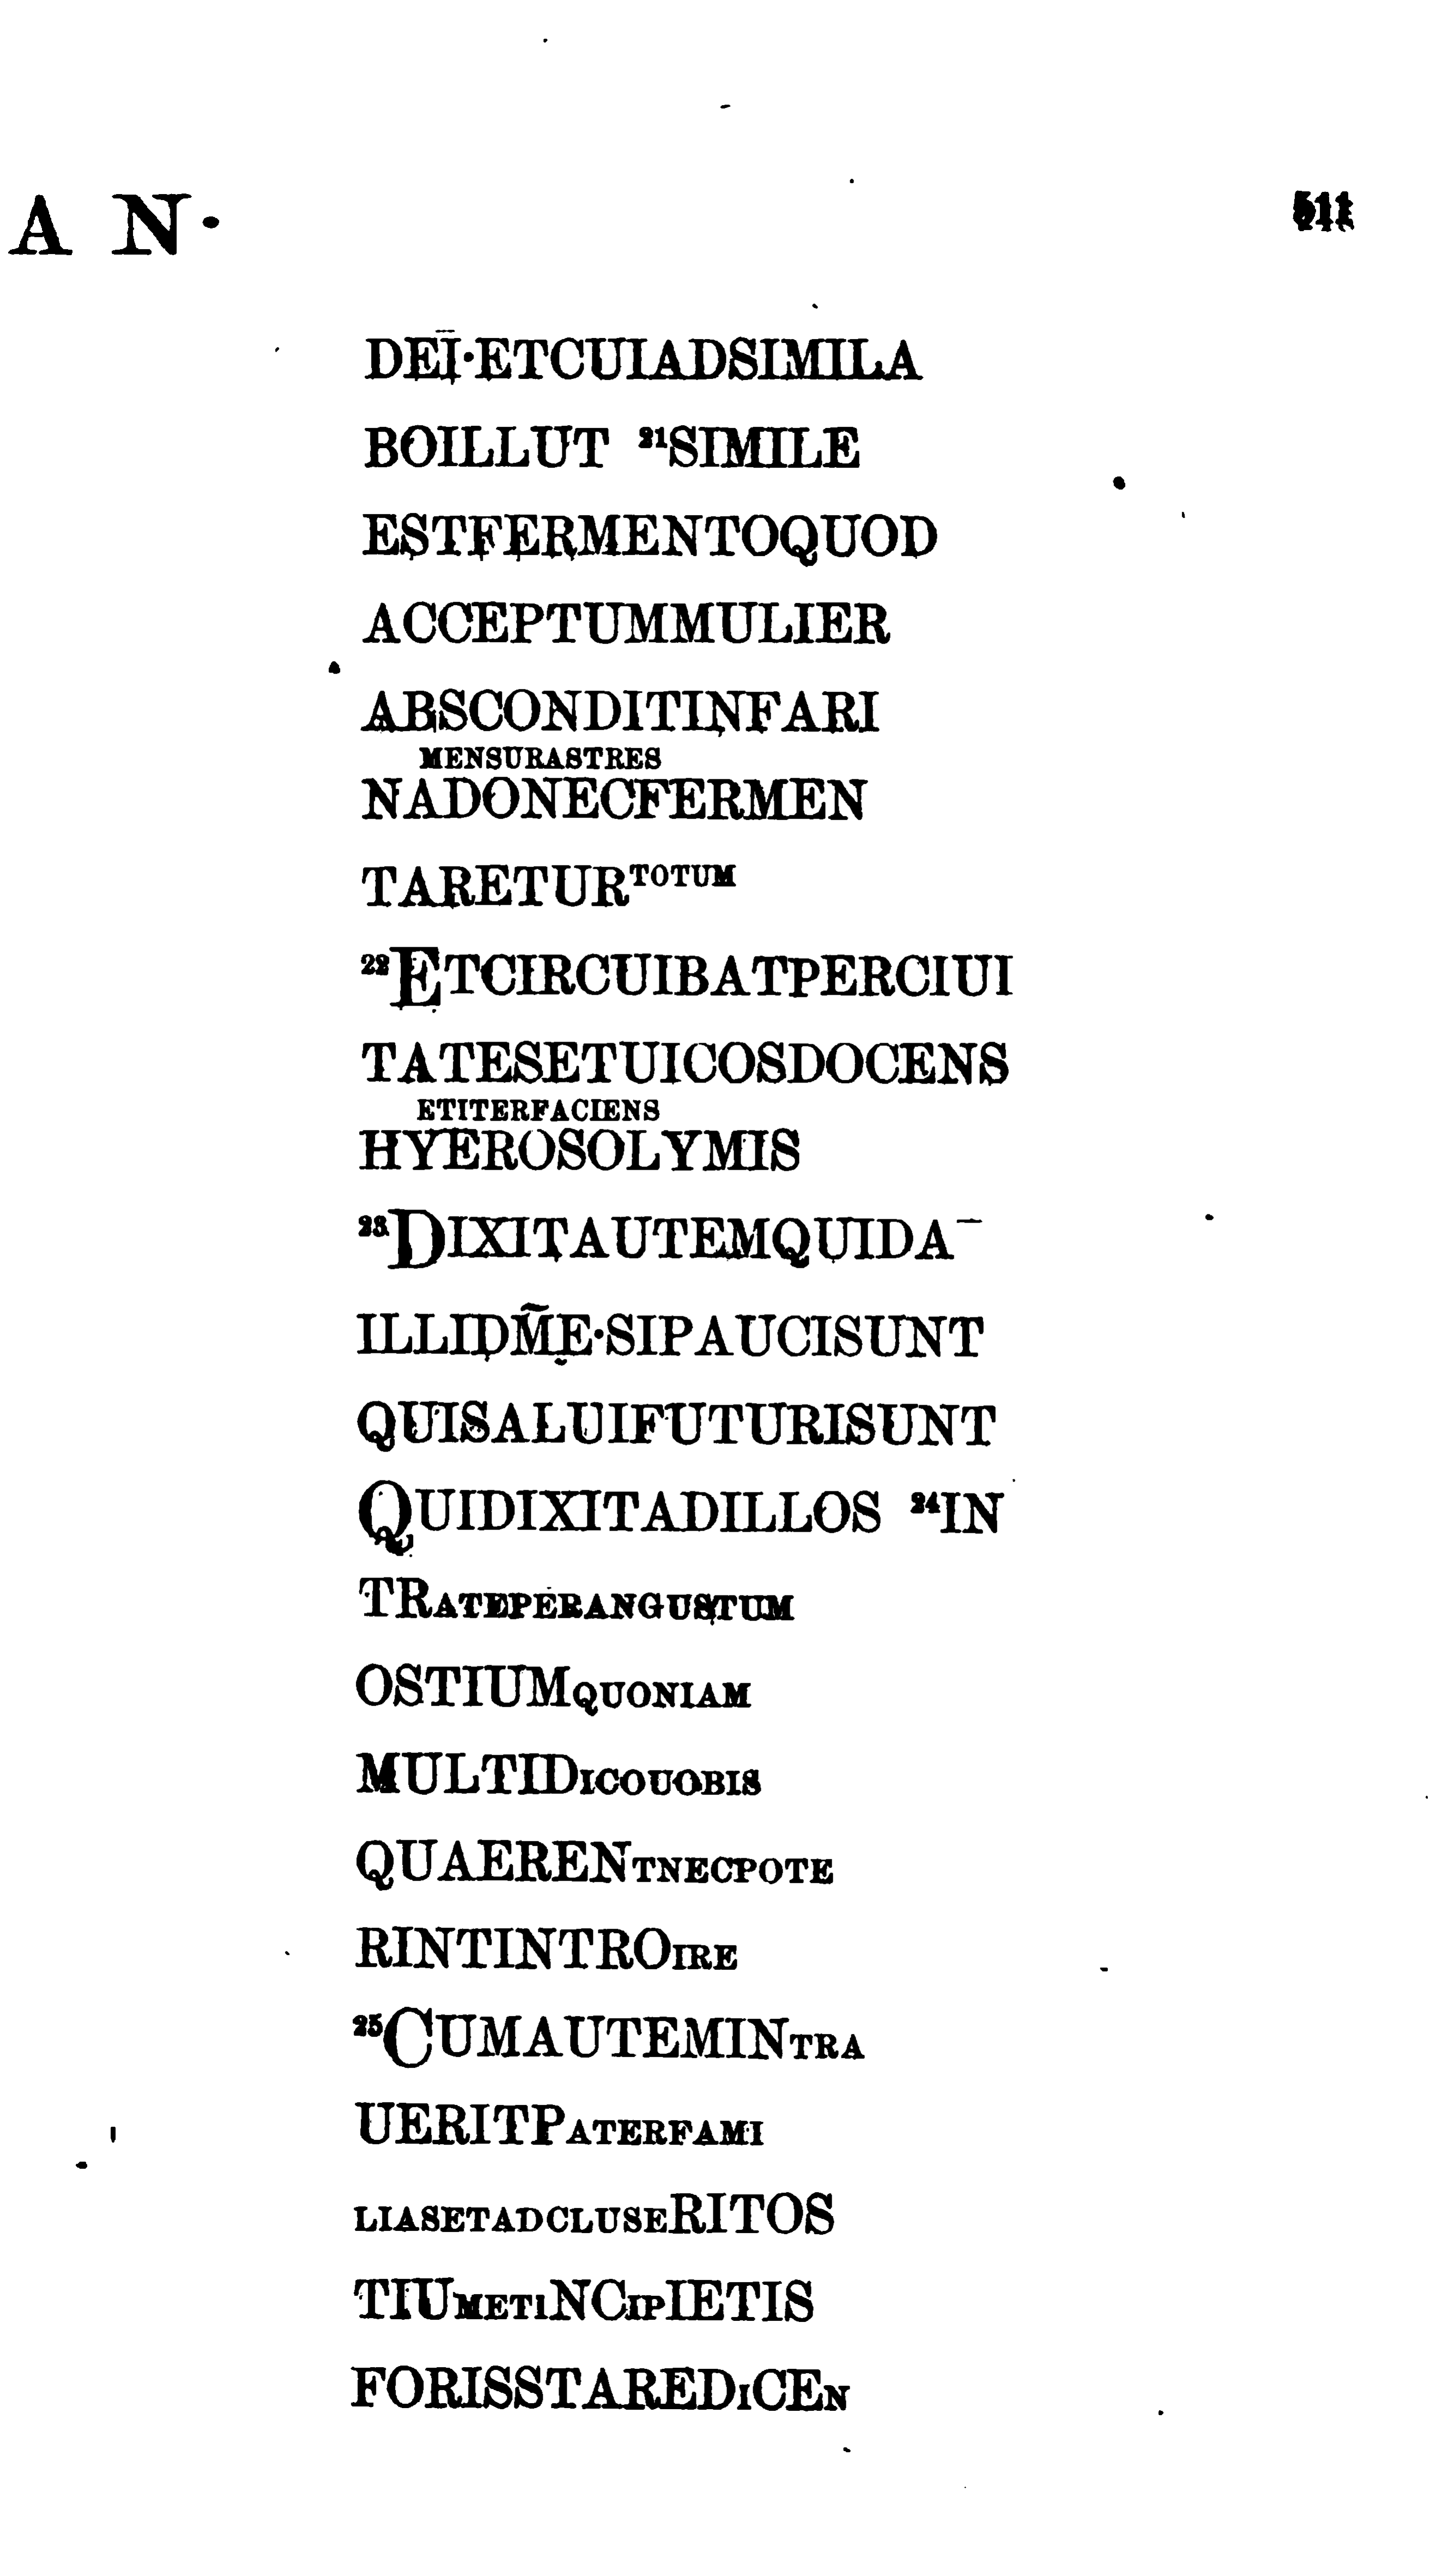 A N· 511
DEĪ·ETCUIADSIMILA
BOILLUT ²¹SIMILE
ESTFERMENTOQUOD
ACCEPTUMMULIER
ABSCONDITINFARI
MENSURASTRES
NADONECFERMEN
TARETURTOTUM
²²ETCIRCUIBATPERCIUI
TATESETUICOSDOCENS
ETITERFACIENS
HYEROSOLYMIS
²³DIXITAUTEMQUIDA¯
ILLIDM̃E·SIPAUCISUNT
QUISALUIFUTURISUNT
QUIDIXITADILLOS ²⁴IN
TRATEPERANGUSTUM
OSTIUMQUONIAM
MULTIDICOUOBIS
QUAERENTNECPOTE
RINTINTROIRE
²⁵CUMAUTEMINTRA
UERITPATERFAMI
LIASETADCLUSERITOS
TIUMETINCIPIETIS
FORISSTAREDICEN